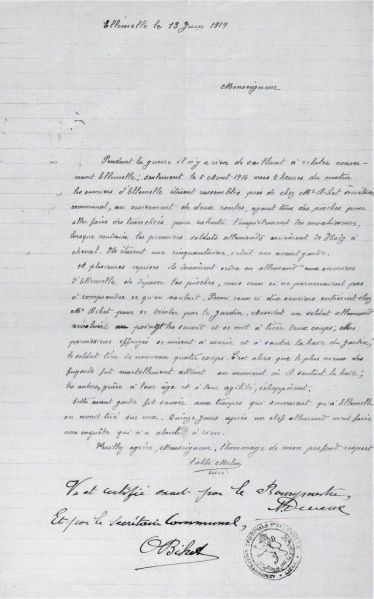 Ellemelle le 13 Juin 1919
Monseigneur
Pendant la guerre il n'y a rien de saillant à relater concer-
nant Ellemelle; seulement le 5 Août 1914 vers 2 heures du matin
les ouvriers d'Ellemelle étaient rassemblés près de chez Mr Bihet secrétaire
communal, au croisement de deux routes, ayant tous des pioches pour
aller faire des tranchées pour ralentir l'envahissement des envahisseurs,
lorsque soudain les premiers soldats allemands arrivèrent de
cheval. Ils étaient une cinquantaine, c'était une avant garde.
A plusieurs reprises ils donnèrent ordre en allemand aux ouvriers
d'Ellemelle de déposer les pioches, mais ceux ci ne parvenaient pas
à comprendre ce qu'on voulait. Parmi ceux ci dix ouvriers entrèrent chez
Mr Bihet pour se cacher par le jardin, aussitôt un soldat allemand
révolver au poing les suivit et se mit à tirer deux coups. Mes
paroissiens effrayés se mirent à courir et à sauter la haie du jardin;
le soldat tire de nouveau quatre coups. C'est alors que le plus vieux des
fuyards fut mortellement atteint au moment où il sautait la haie;
les autres, grâce à leur âge et à leur agilité, échappèrent.
Cette avant garde fit savoir aux troupes qui suivaient qu'à Ellemelle
on avait tiré sur eux. Quinze jours après un chef allemand vint faire
une enquête qui n'a abouti à rien.
Veuillez agréer, Monseigneur, l'hommage de mon profond respect
curé
Vu et certifié exact par le Bourgmestre,
Et par le Secrétaire Communal,
O Bihet